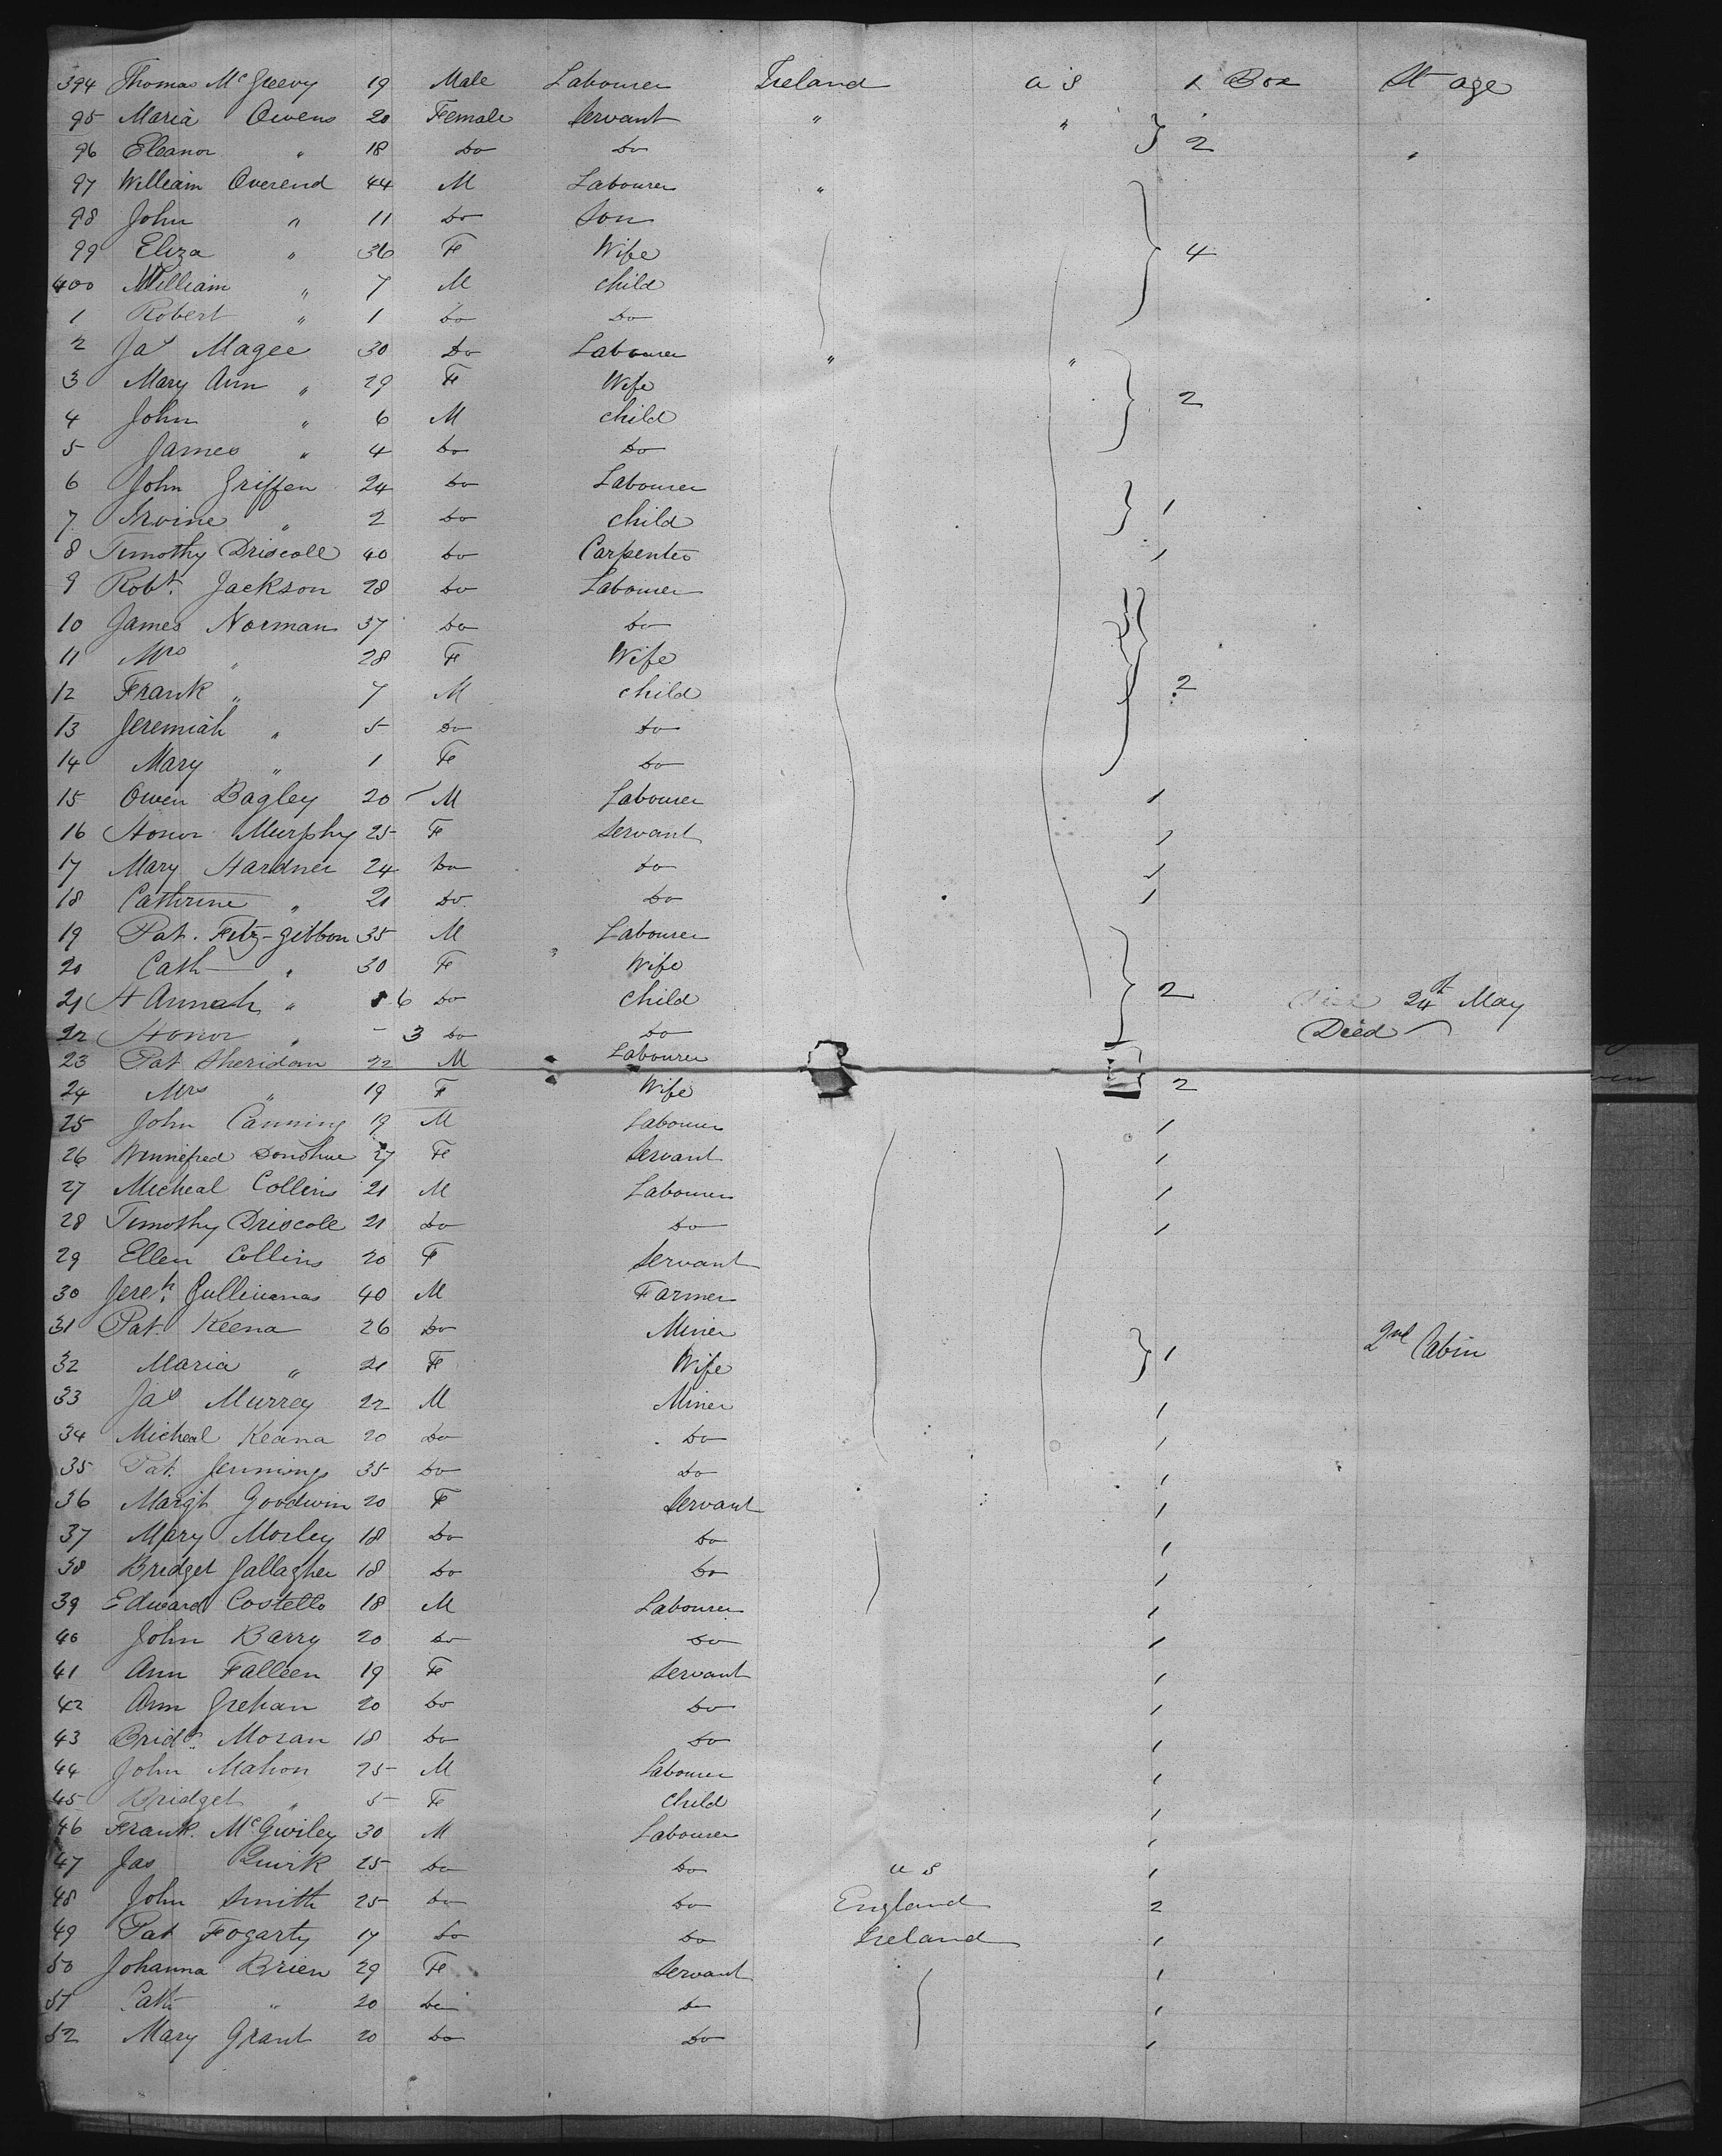 394 Thomas McGreevy 19 Male Labourer Ireland U S 1 Box St age
95 Maria Owens 20 Female Servant " "
96 Eleanor " 18 Do Do 2 "
97 William Overend 44 M Labourer "
98 John " 11 Do Son
99 Eliza " 36 F Wife 4
400 William " 7 M Child
1 Robert " 1 Do Do
2 Jas Magee 30 Do Labourer " "
3 Mary Ann " 29 F Wife 2
4 John " 6 M Child
5 James " 4 Do Do
6 John Griffen 24 Do Labourer
7 Irvine " 2 Do Child 1
8 Timothy Driscoll 40 Do Carpenter 1
9 Robt. Jackson 28 Do Labourer
10 James Norman 37 Do Do
11 Mrs " 28 F Wife
12 Frank " 7 M Child 2
13 Jeremiah " 5 Do Do
14 Mary " 1 F Do
15 Owen Bagley 20 M Labourer 1
16 Honor Murphy 25 F Servant 1
17 Mary Hardner 24 Do Do 1
18 Cathrine " 21 Do Do 1
19 Pat. Fitz-Gibbon 35 M Labourer
20 Cath " 30 F Wife
21 Hannah " 6 Do Child 2 Died 24th May
22 Honor " 3 Do Do Died
23 Pat Sheridan 22 M Labourer
24 Mrs " 19 F Wife 2
25 John Canning 19 M Labourer 1
26 Winnefred Donohue 27 F Servant 1
27 Micheal Collins 21 M Labourer 1
28 Timothy Driscoll 21 Do Do 1
29 Ellen Collins 20 F Servant
30 Jereh. Sullivanas 40 M Farmer
31 Pat. Keena 26 Do Miner 2nd Cabin
32 Maria " 21 F Wife 1
33 Jas Murrey 22 M Miner 1
34 Micheal Keana 20 Do Do 1
35 Pat. Jennings 35 Do Do 1
36 Margt Goodwin 20 F Servant 1
37 Mary Morley 18 Do Do 1
38 Bridget Gallagher 18 Do Do 1
39 Edward Costello 18 M Labourer 1
40 John Barry 20 Do Do 1
41 Ann Falleen 19 F Servant 1
42 Ann Grehan 20 Do Do 1
43 Bridt. Moran 18 Do Do 1
44 John Mahon 25 M Labourer 1
45 Bridget " 5 F Child 1
46 Frank. McGwiley 30 M Labourer 1
47 Jas Quirk 25 Do Do U S 1
48 John Smith 25 Do Do England 2
49 Pat Fogarty 17 Do Do Ireland 1
50 Johanna Brien 29 F Servant 1
51 Cath " 20 Do Do 1
52 Mary Grant 20 Do Do 1